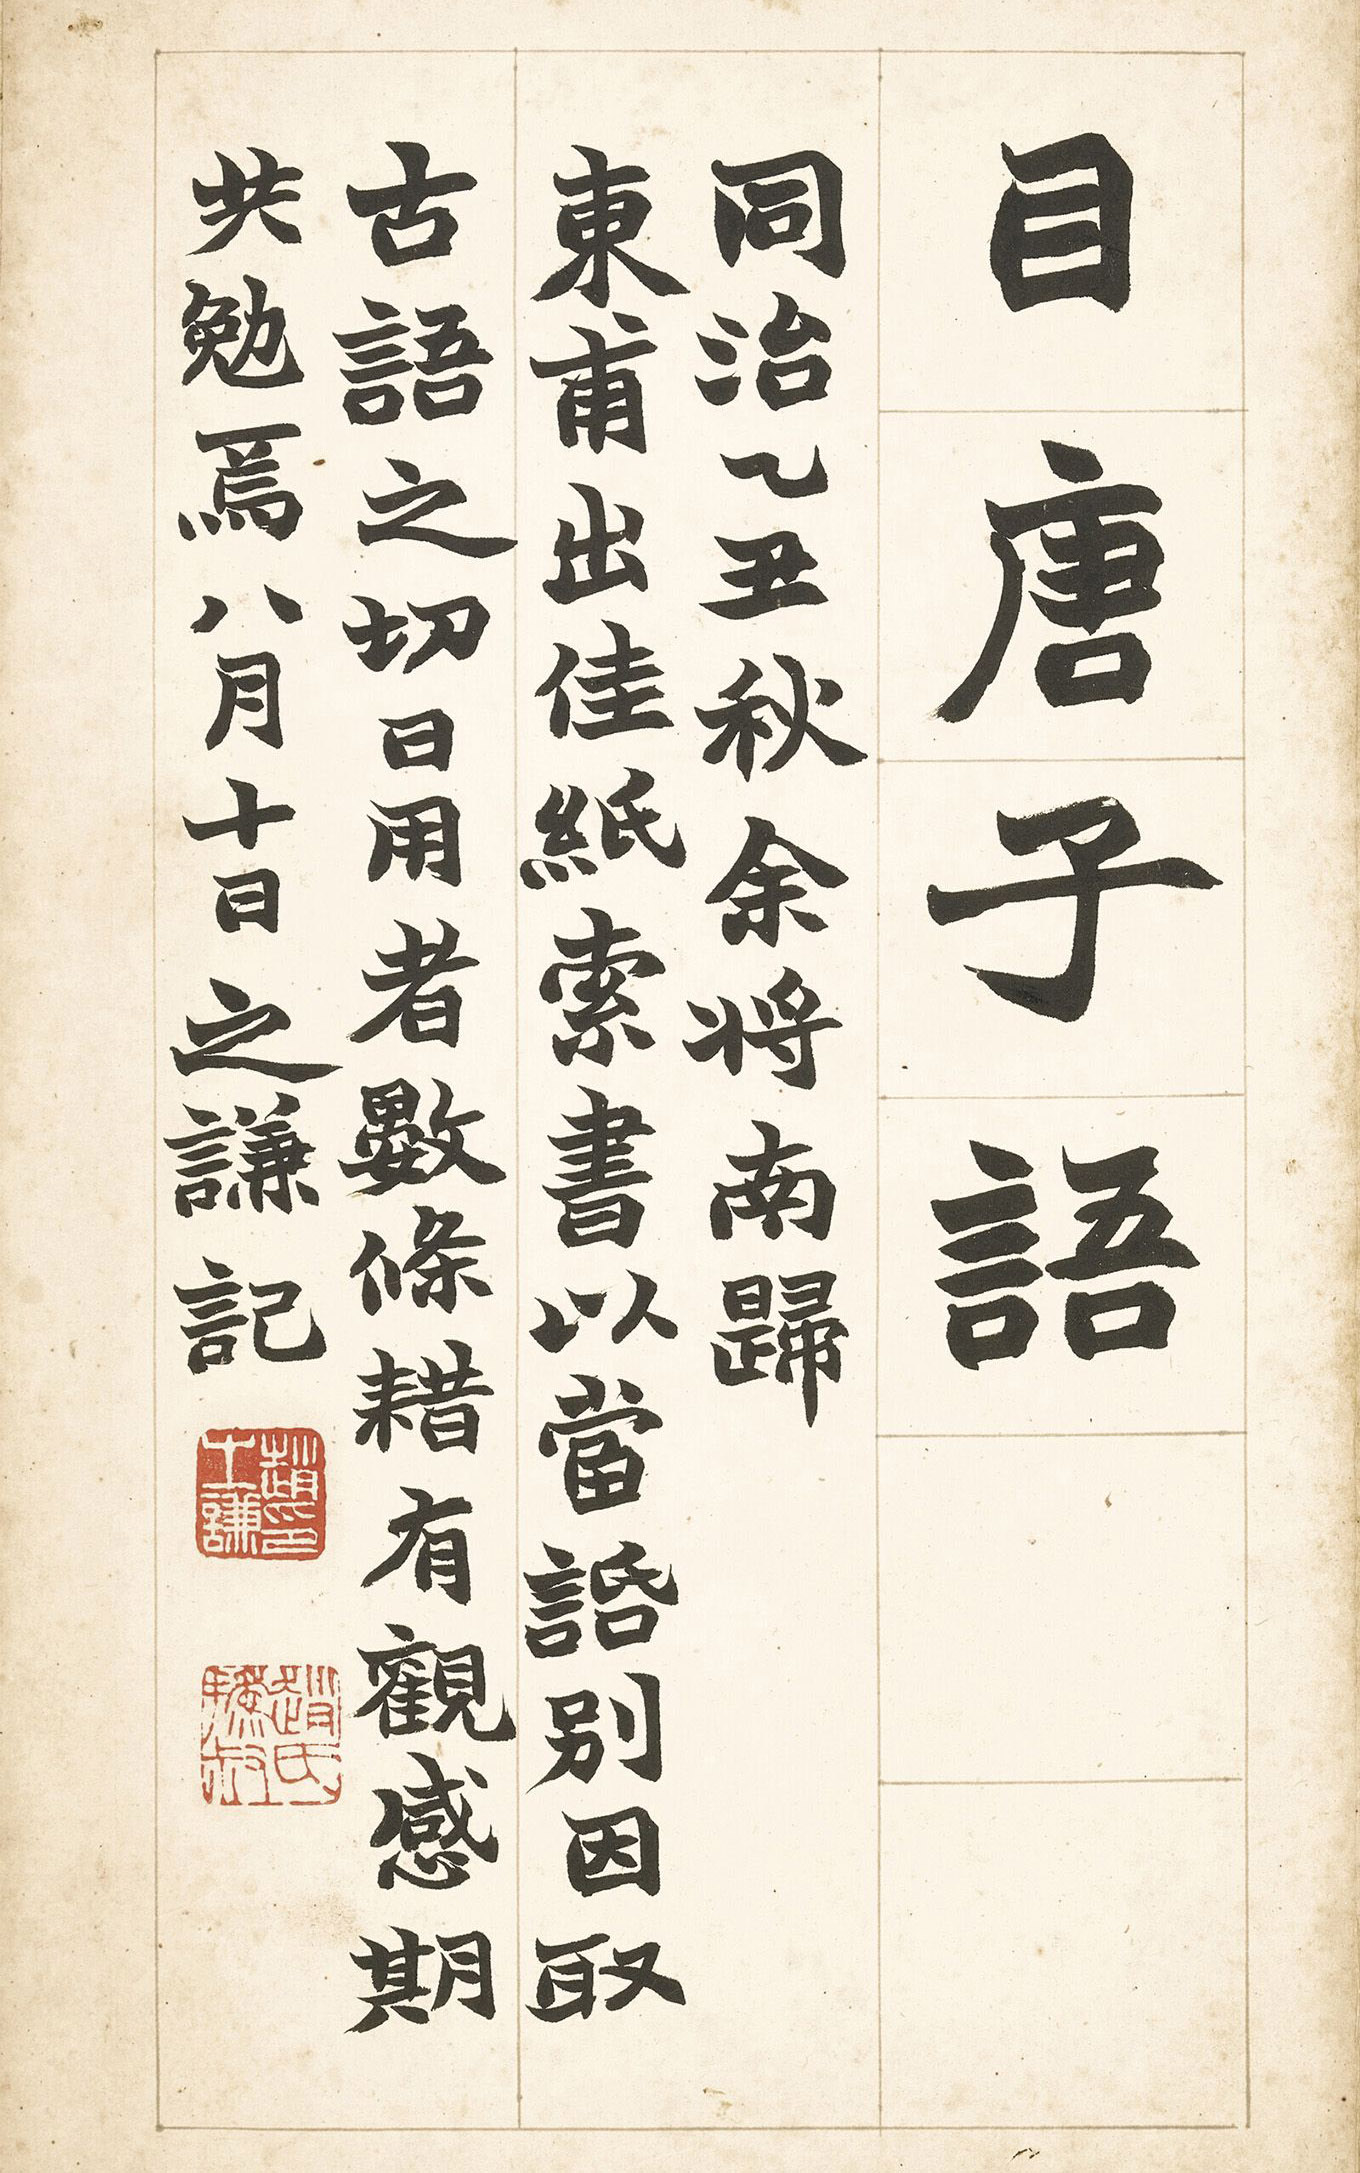 目唐子語
同治乙丑秋余將南歸
東甫出佳紙索書以當話別因取
古語之切日用者數條耤有觀感期
共勉焉八月十日之謙記
趙印之謙
趙氏撝叔